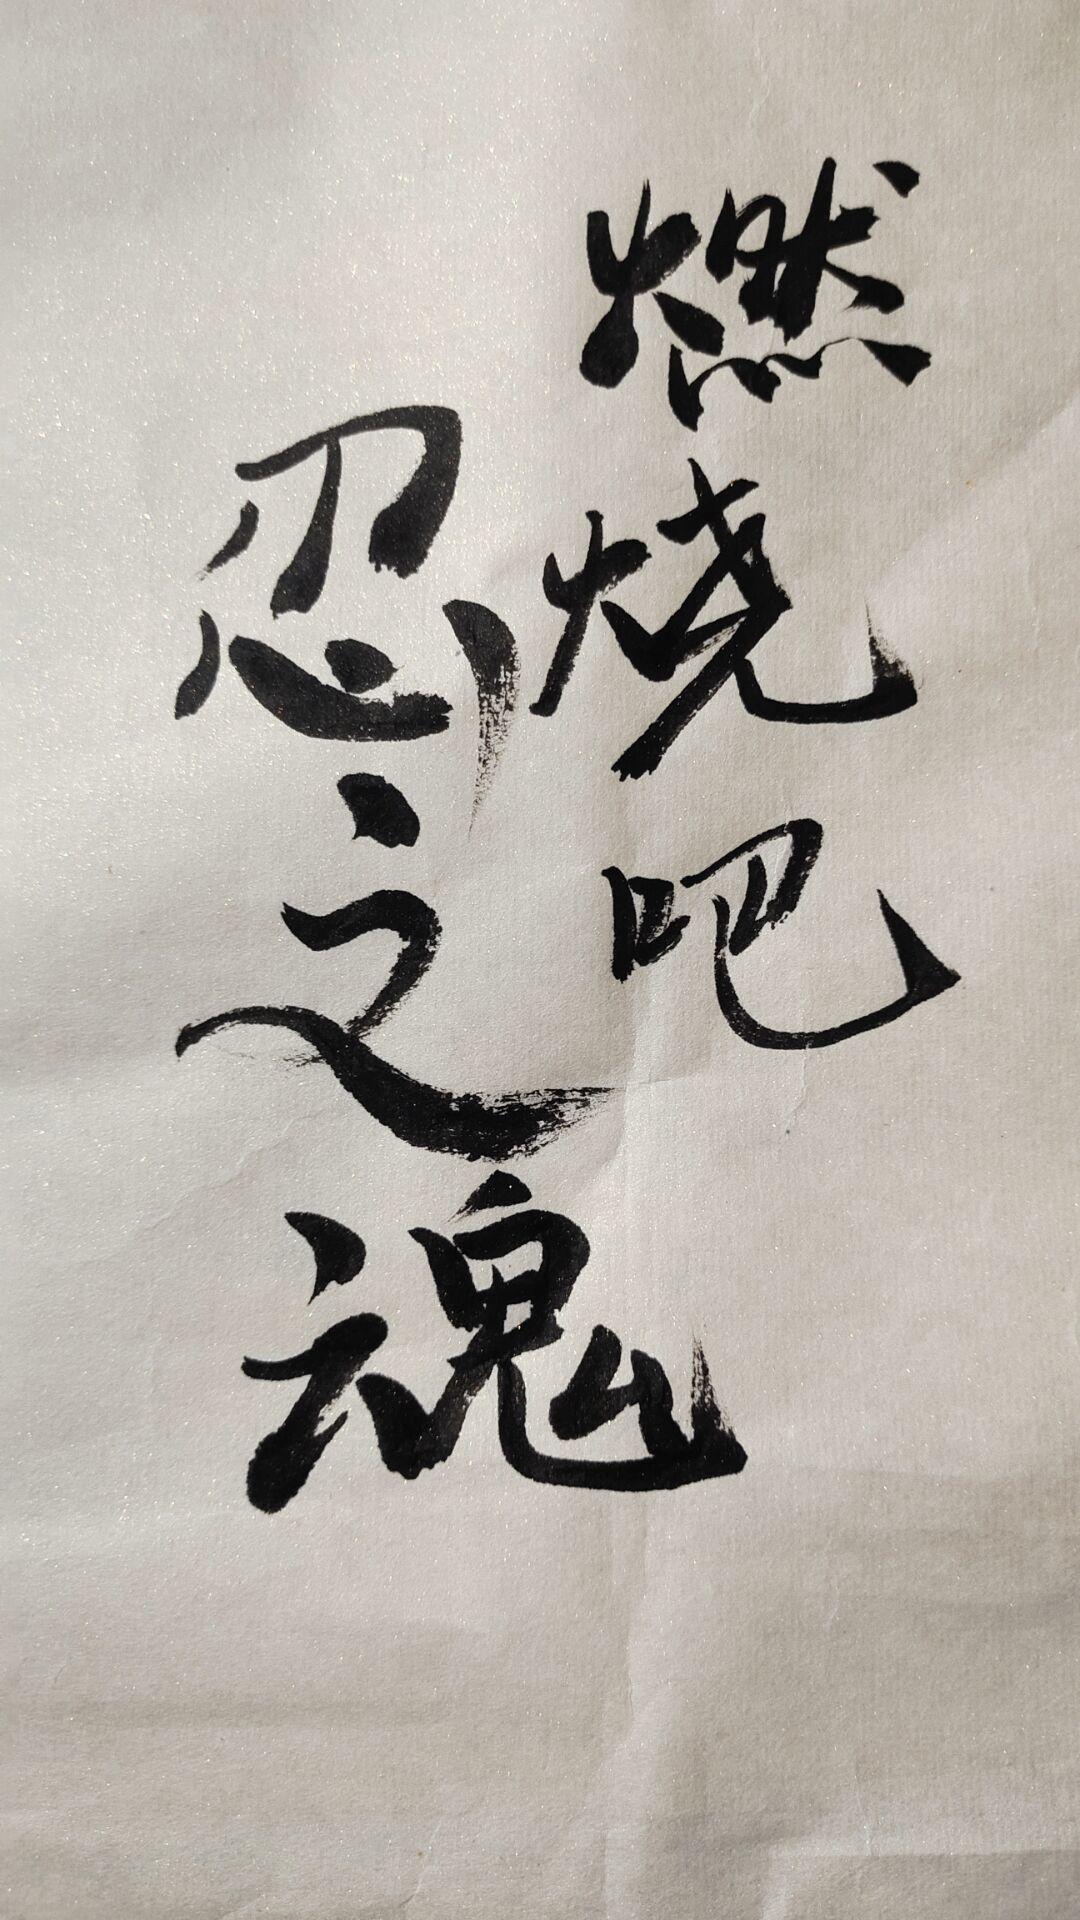 燃烧吧
忍之魂